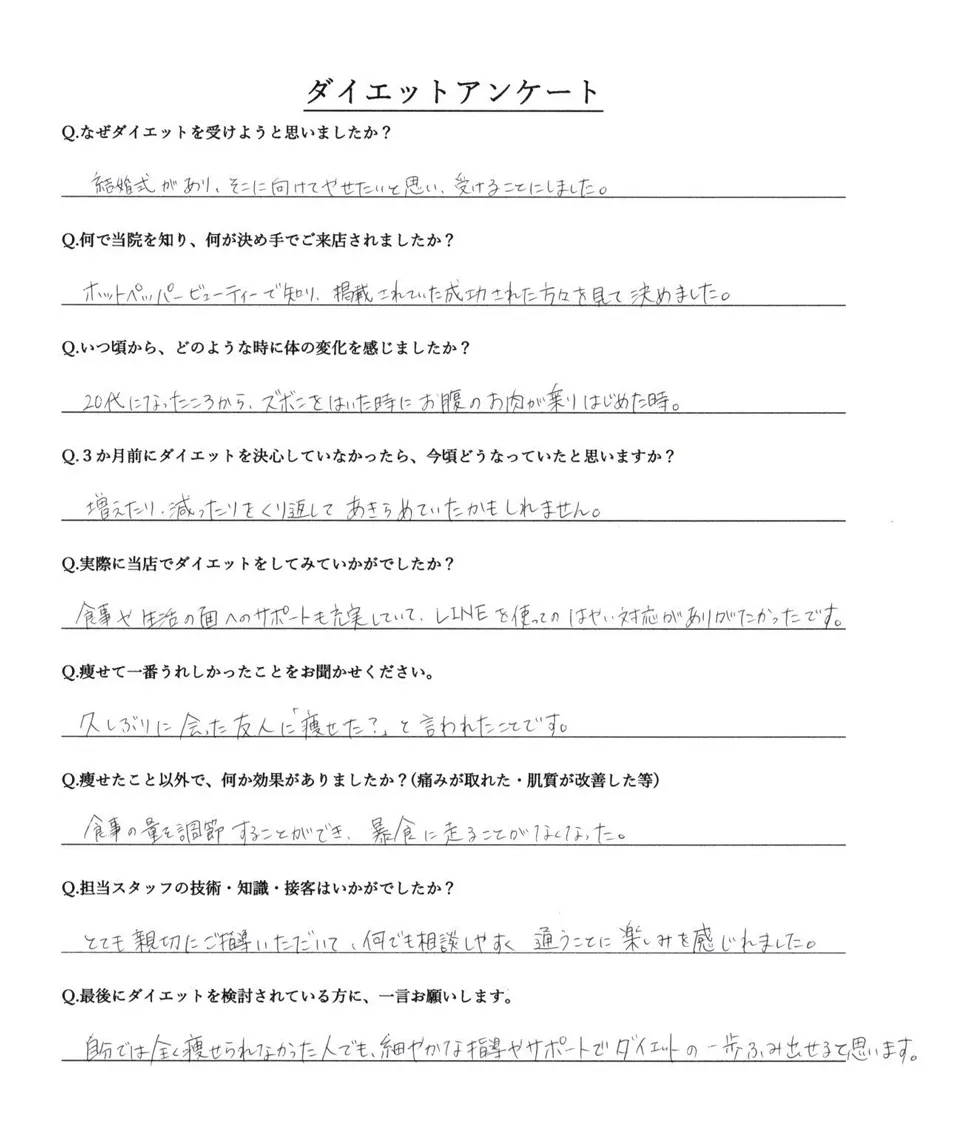 ダイエットアンケート
Q.なぜダイエットを受けようと思いましたか？
結婚式があり、そこに向けてやせたいと思い、受けることにしました。
Q.何で当院を知り、何が決め手でご来店されましたか？
ホットペッパービューティーで知り、掲載されていた成功された方々を見て決めました。
Q.いつ頃から、どのような時に体の変化を感じましたか？
20代になったころから、ズボンをはいた時にお腹のお肉が乗りはじめた時。
Q.３か月前にダイエットを決心していなかったら、今頃どうなっていたと思いますか？
増えたり、減ったりをくり返してあきらめていたかもしれません。
Q.実際に当店でダイエットをしてみていかがでしたか？
食事や生活の面へのサポートも充実していて、LINEを使ってのはやい対応がありがたかったです。
Q.痩せて一番うれしかったことをお聞かせください。
久しぶりに会った友人に「痩せた？」と言われたことです。
Q.痩せたこと以外で、何か効果がありましたか？(痛みが取れた・肌質が改善した等)
食事の量を調節することができ、暴食に走ることがなくなった。
Q.担当スタッフの技術・知識・接客はいかがでしたか？
とても親切にご指導いただいて、何でも相談しやすく通うことに楽しみを感じれました。
Q.最後にダイエットを検討されている方に、一言お願いします。
自分では全く痩せられなかった人でも、細やかな指導やサポートでダイエットの一歩ふみ出せると思います。